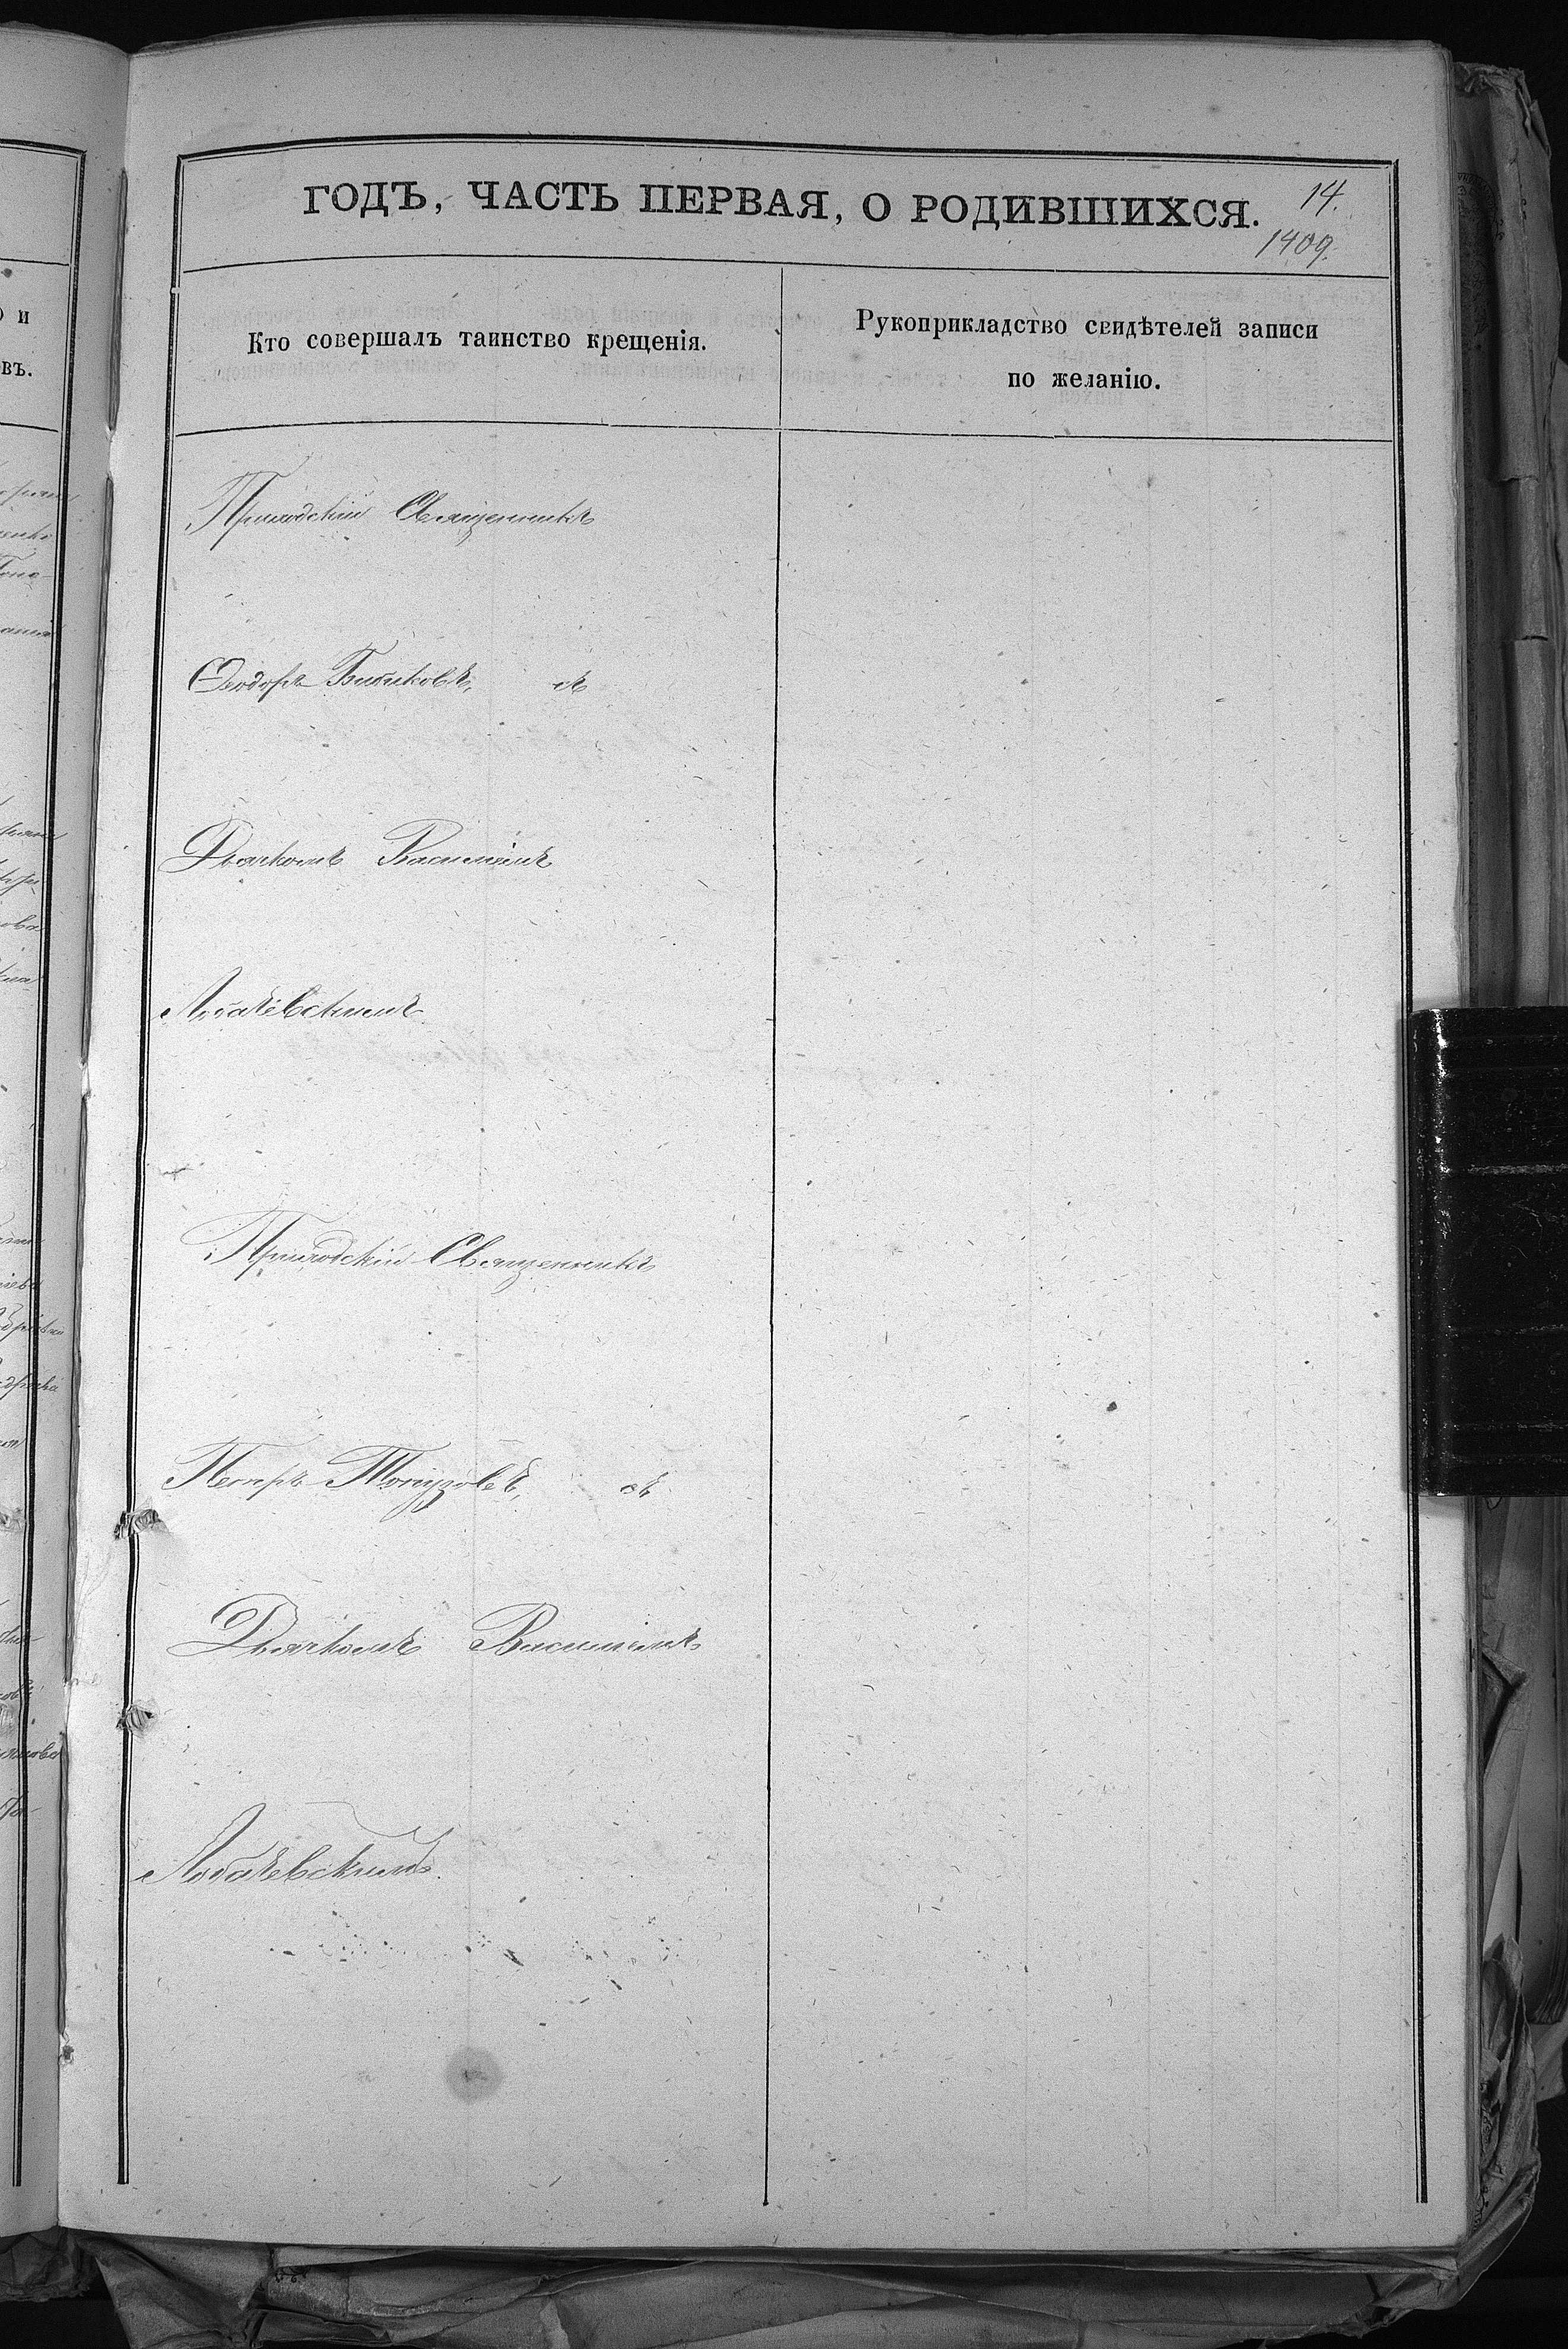 ГОДЪ, ЧАСТЬ ПЕРВАЯ, О РОДИВШИХСЯ.
14.
1409.
и
въ.
Кто совершалъ таинство крещенія.
Рукоприкладство свидѣтелей записи
по желанію.
Приходскій Священникъ
Ѳеодоръ съ
Дьячкомъ Василіемъ
Лобачевскимъ
Приходскій Священникъ
Петръ Топузовъ, съ
Дьячкомъ Василіемъ
Лобачевскимъ.